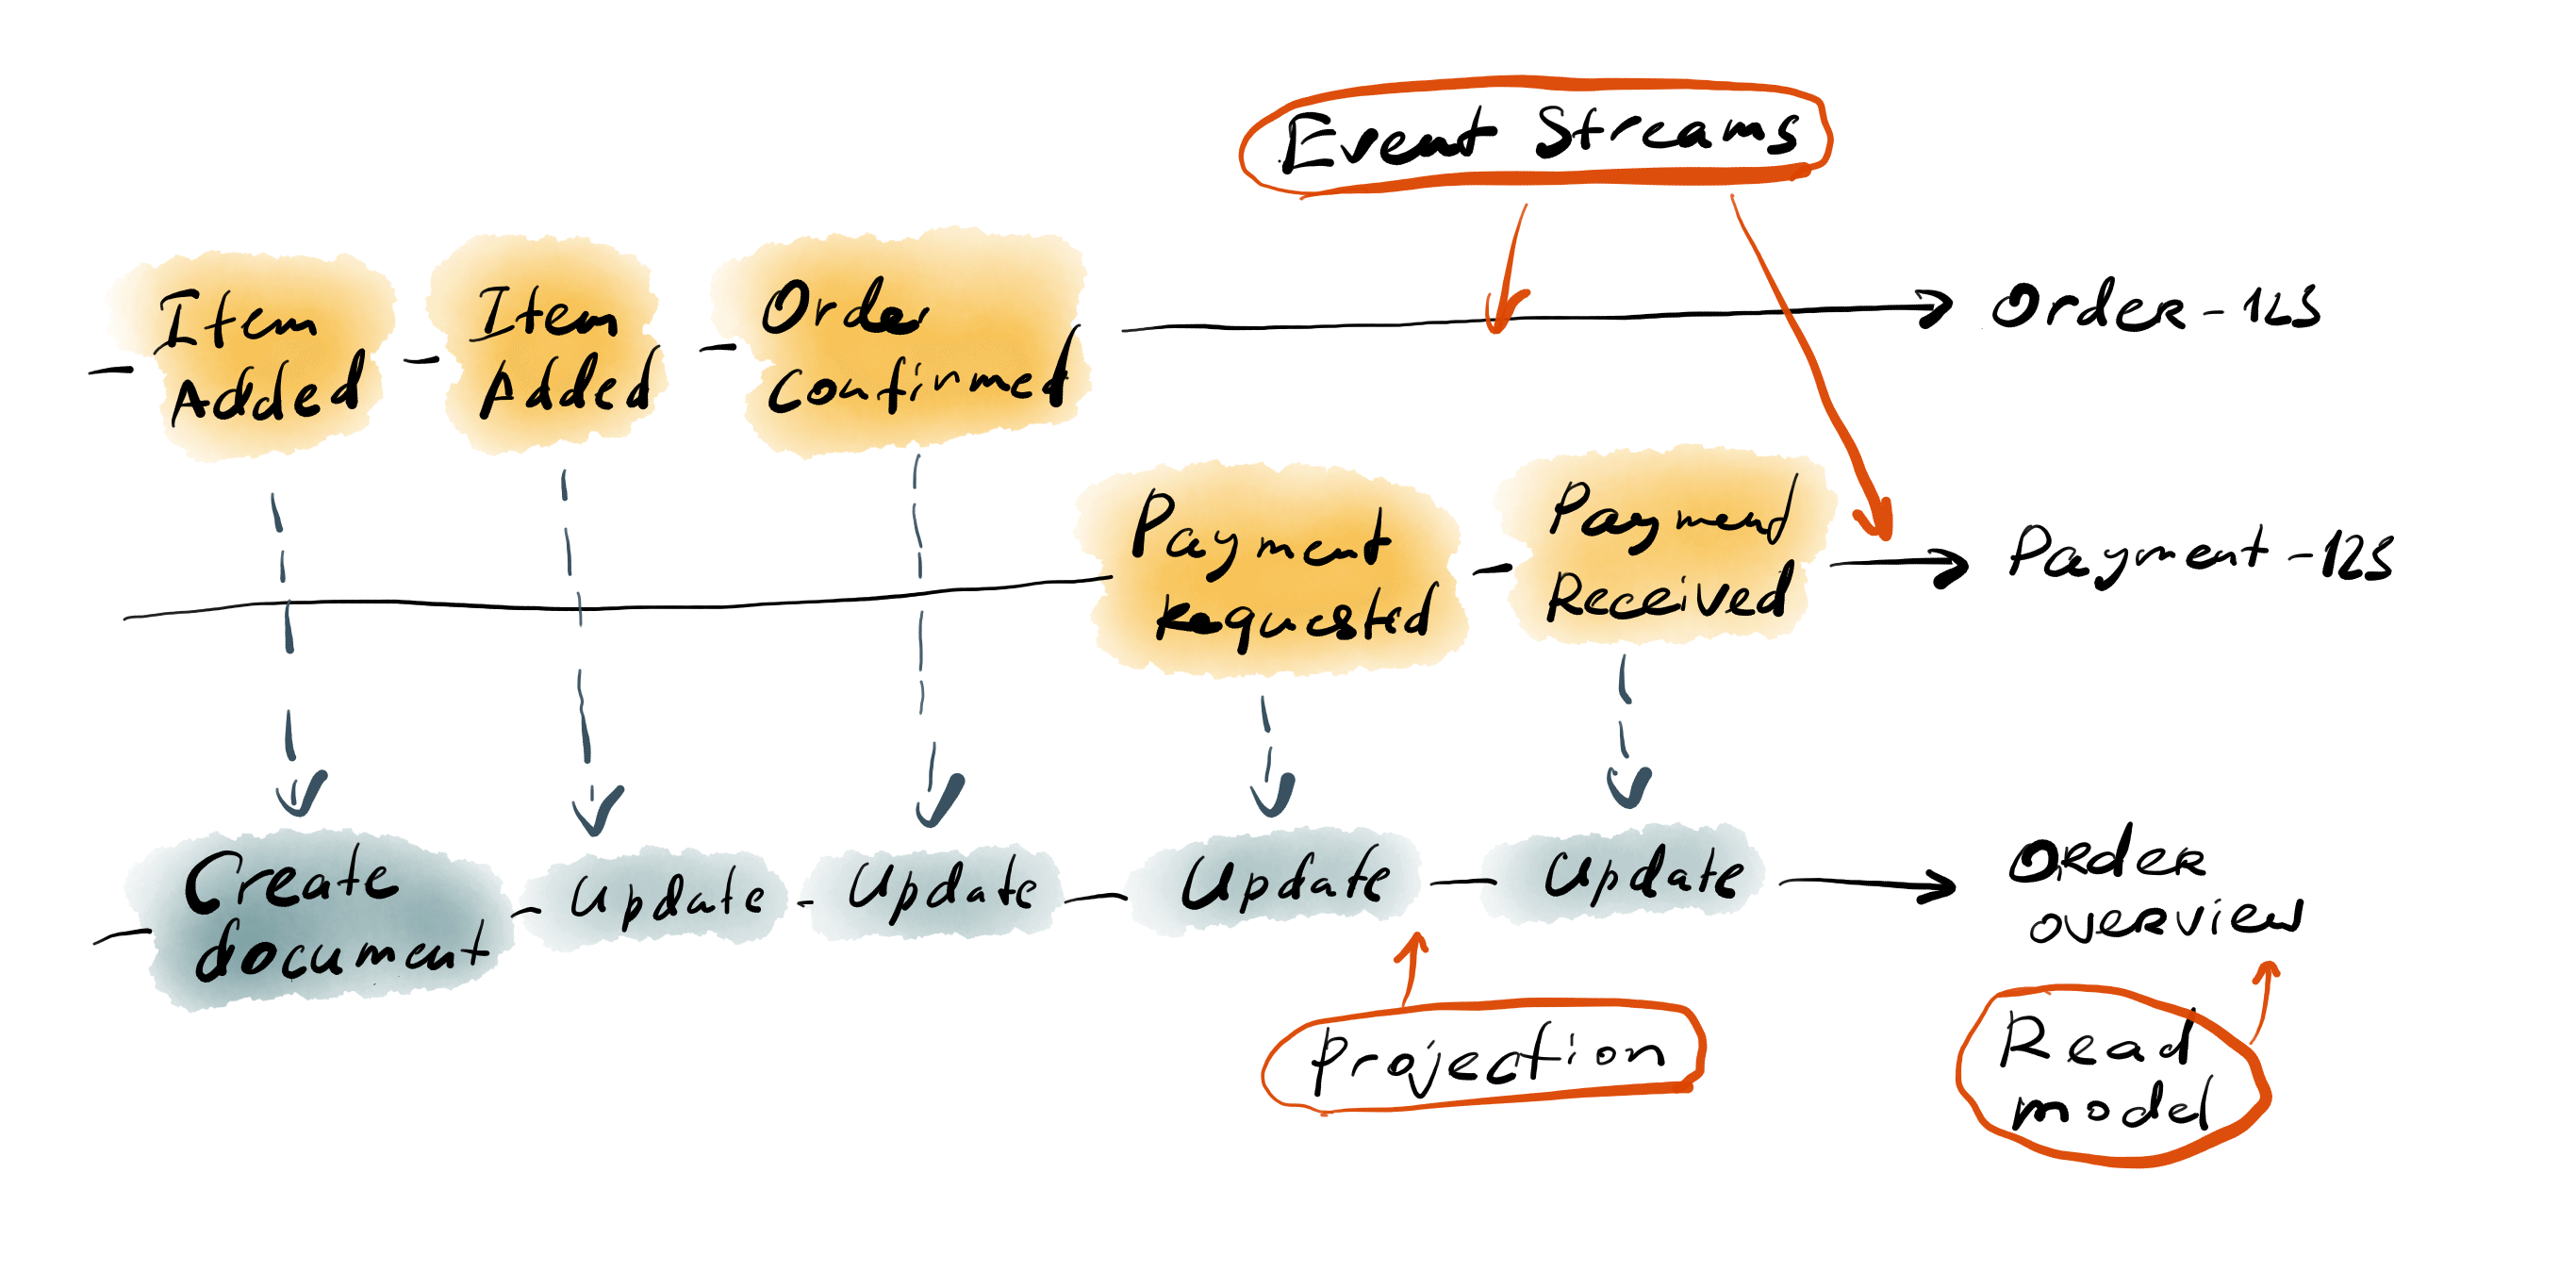 Event Streams
Item
Added
Item
Added
Order
Confirmed
Order-123
Payment
Requested
Payment
Received
Payment-123
Create
document
Update
Update
Update
Update
Order
overview
Projection
Read
model